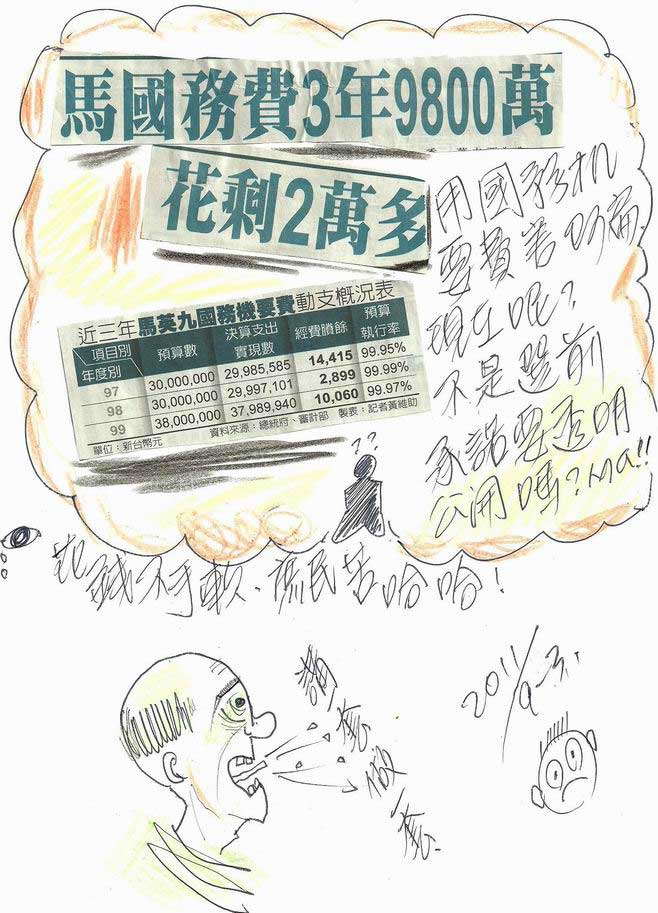 馬國務費3年9800萬
花剩2萬多
用國務机
要費苦
現在呢?
不是選前
承諾要透明
公開嗎?ma!!
近三年馬英九國務機要費動支概況表
項目別 年度別 預算數 決算支出實現數 經費賸餘 預算執行率
97 30,000,000 29,985,585 14,415 99.95%
98 30,000,000 29,997,101 2,899 99.99%
99 38,000,000 37,989,940 10,060 99.97%
單位:新台幣元 資料來源:總統府、審計部 製表:記者黃維助
??
花錢不手軟.庶民苦哈哈!
講一套做一套.
2011/9